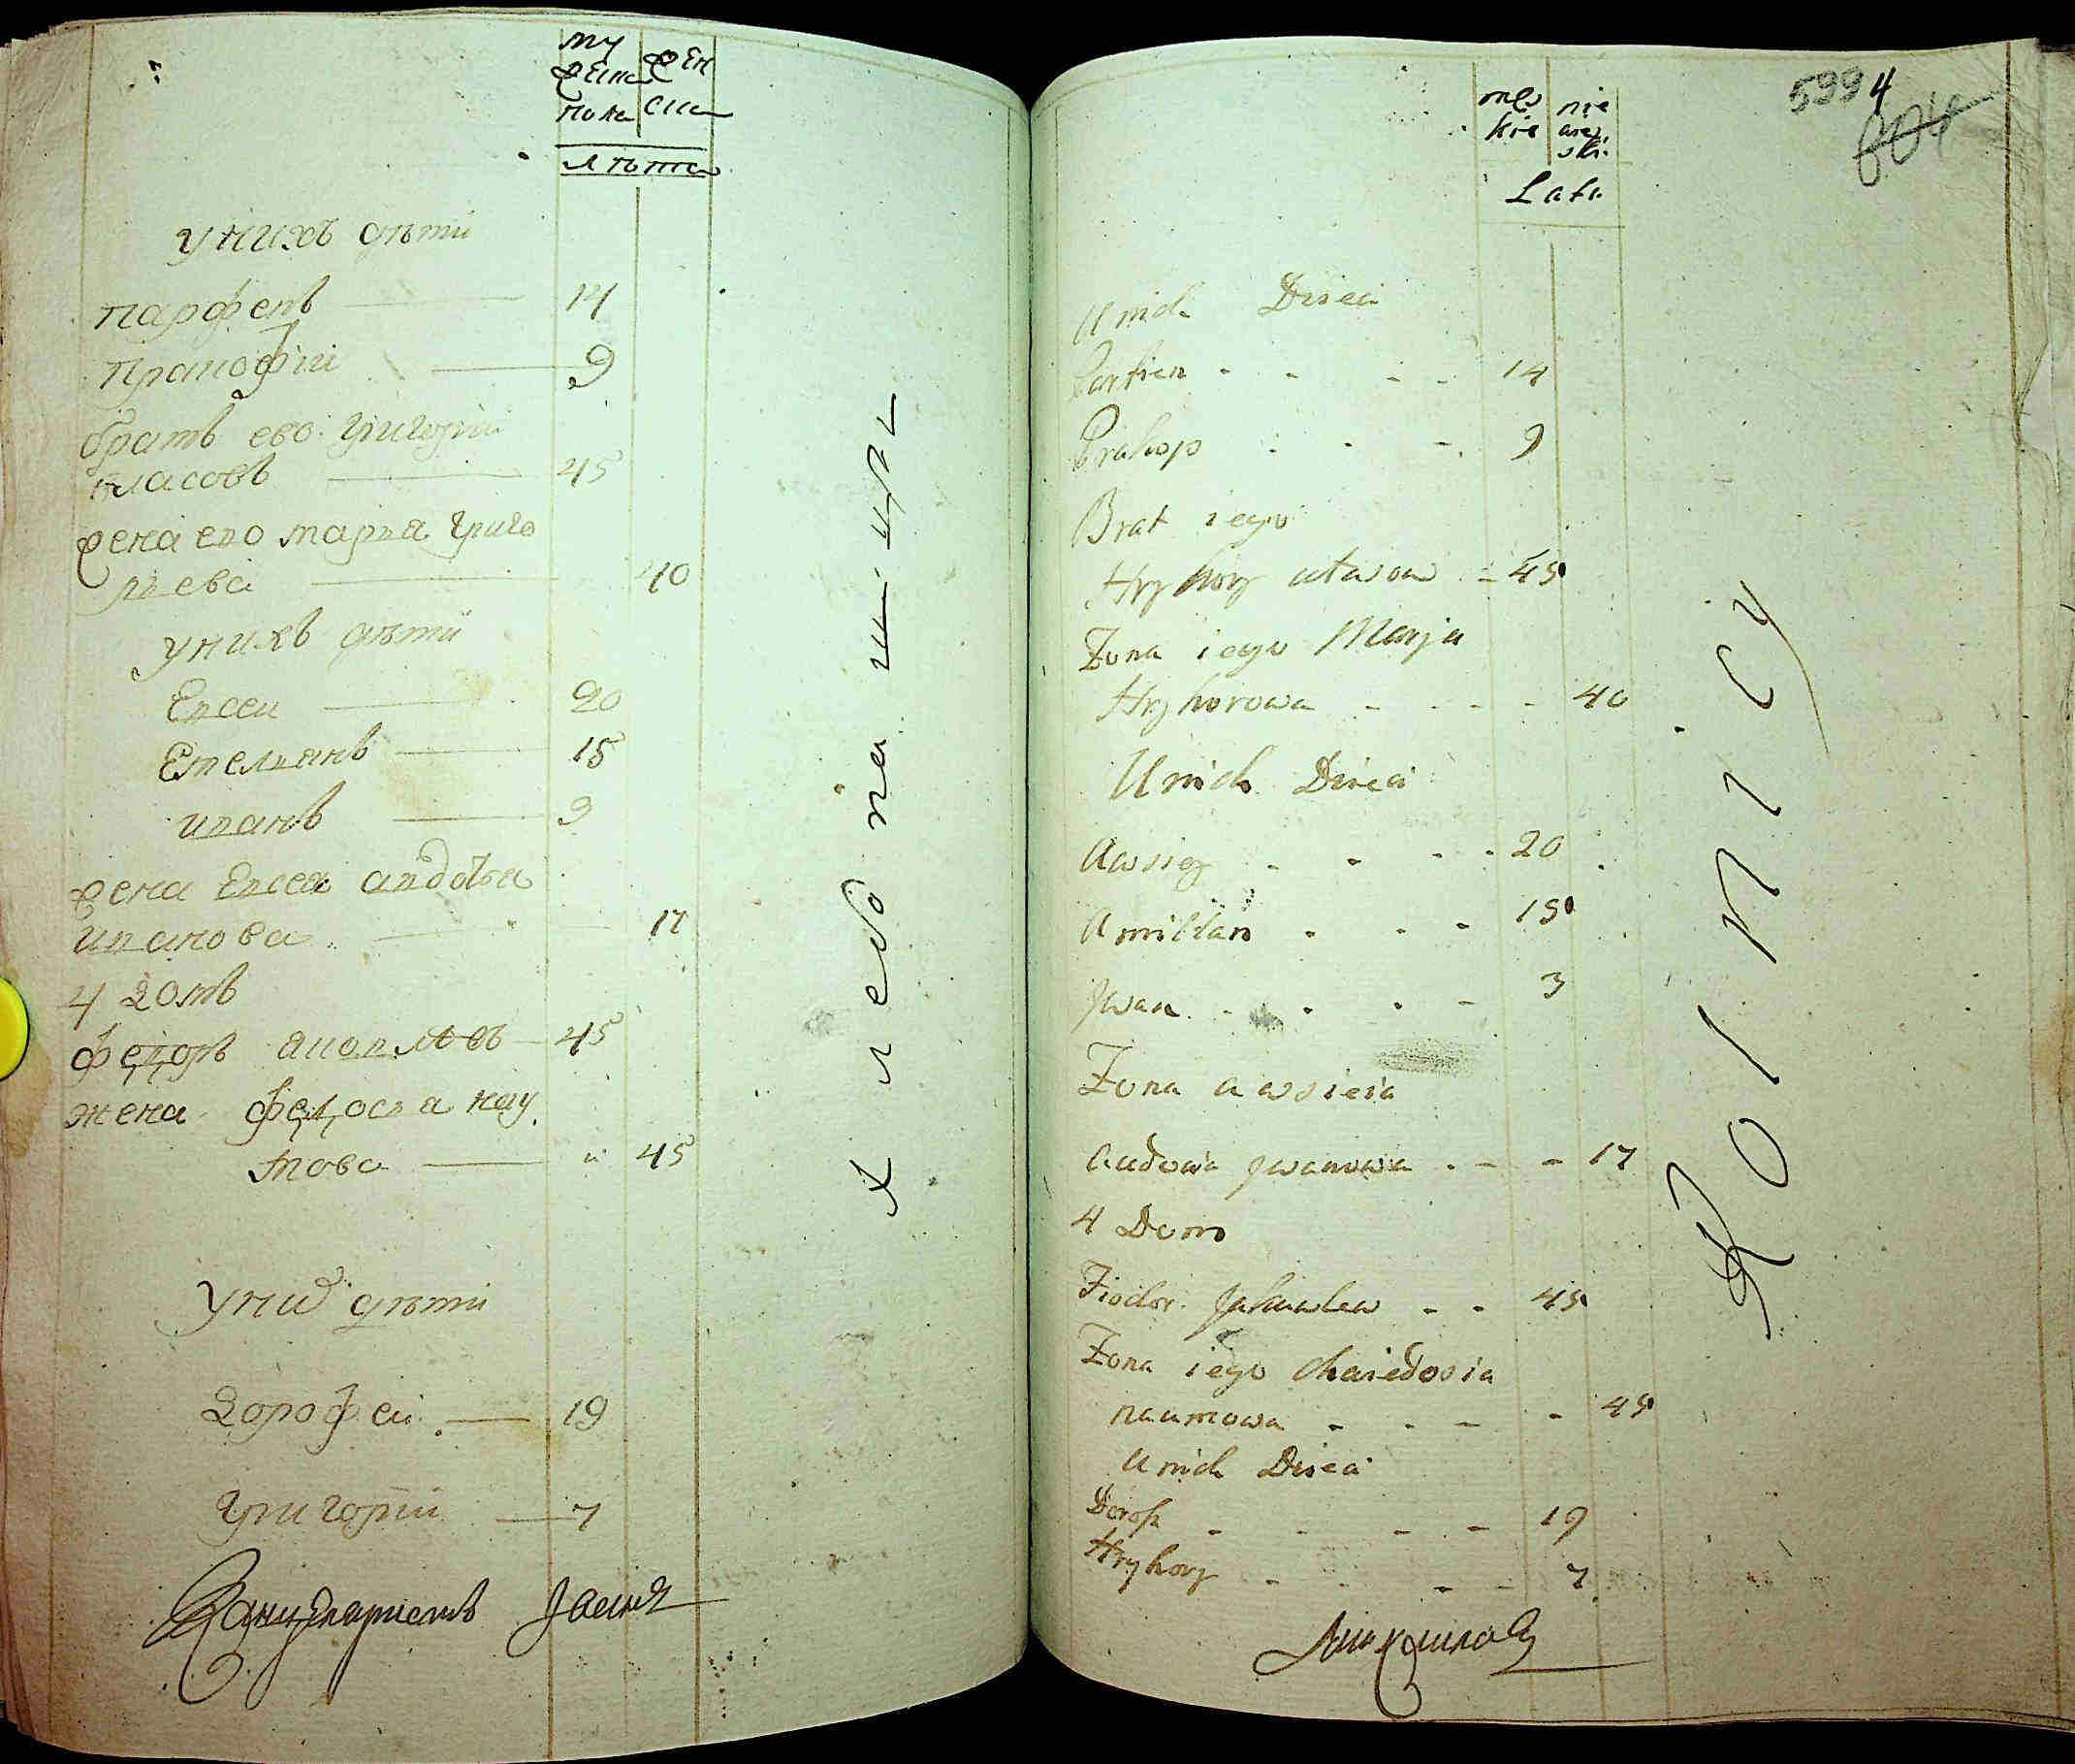 му жен
жеска ска
пола
лѣта
у нихъ дѣти
парфенъ 14
Пракофiи 9
братъ ево Григорiи
власовъ 45
жена ево марья григо
рьева 40
у нихъ дѣти
Евсеи 20
Емельянъ 15
иванъ 3
жена Евсея авдотья
иванова 17
4 домъ
федоръ яковлевъ 45
жена федосья нау
мова 45
у них дѣти
дорофеи 19
григорiи 7
хлебопа ш цы
599 4
604
męs nie
kie wie
ski
Lata
U nich Dzieci
Parfien 14
Prakop 9
Brat iego
Hryhory ułasow 45
Żona iego Marja
Hryhorowa 40
U nich Dzieci
Awsiey 20
Amillan 15
Jwan 3
Żona awsieia
Audocia Jwanowa 17
4 Dom
Fiodor Jakowlew 45
Żona iego Chwiedosia
naumowa 45
U nich Dzieci
Dorof 19
Hryhory 7
Rolnicy